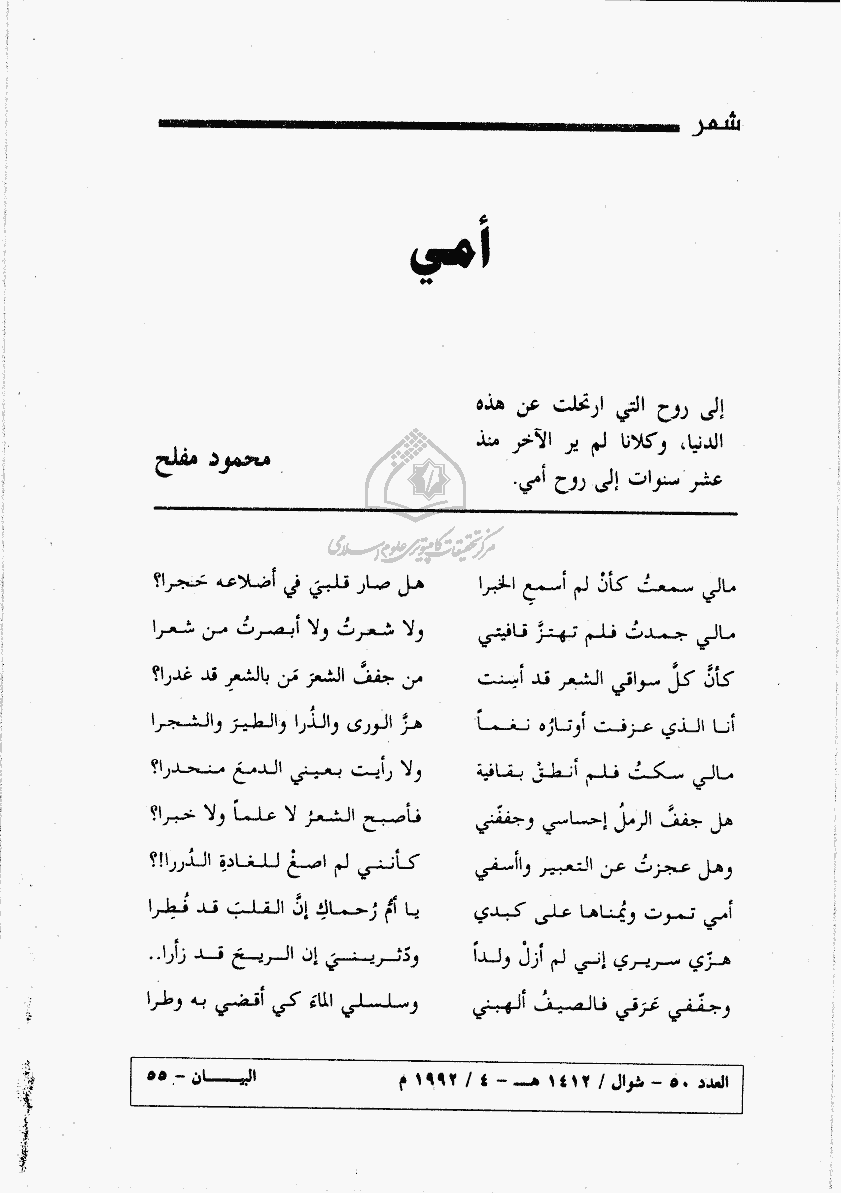 شعر
أمي
إلى روح التي ارتحلت عن هذه
الدنيا، وكلانا لم ير الآخر منذ
عشر سنوات إلى روح أمي.
محمود مفلح
مركز تحقيقات كامپيوترى علوم اسلامى
مالي سمعتُ كأنْ لم أسمعِ الخبرا هل صار قلبيَ في أضلاعه حَجرا؟
مالي جمدتُ فلم تهتزَّ قافيتي ولا شعرتُ ولا أبصرتُ من شعرا
كأنَّ كلَّ سواقي الشعر قد أسِنت من جففَّ الشعرَ مَن بالشعرِ قد غدرا؟
أنا الذي عزفت أوتارُه نغماً هزَّ الورى والذُرا والطيرَ والشجرا
مالي سكتُ فلم أنطقْ بقافية ولا رأيت بعيني الدمعَ منحدرا؟
هل جففَّ الرملُ إحساسي وجففّني فأصبح الشعرُ لا علماً ولا خبرا؟
وهل عجزتُ عن التعبير واأسفي كأنني لم اصغْ للغادةِ الدُررا!؟
أمي تموت ويُمناها على كبدي يا أمُّ رُحماكِ إنَّ القلبَ قد فُطِرا
هزّي سريري إني لم أزلْ ولداً ودّثرينيَ إن الريحَ قد زأرا..
وجفّفي عَرَقي فالصيفُ ألهبني وسلسلي الماءَ كي أقضي به وطرا
العدد ٥٠ - شوال / ١٤١٢ هـ - ٤ / ١٩٩٢ م
البيان - ٥٥